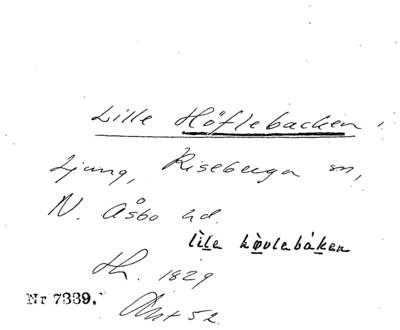 Lille Höflebacken,
Ljung, Riseberga sn,
N. Åsbo hd.
lile hövlebaken
1829
Nr 7339.
52